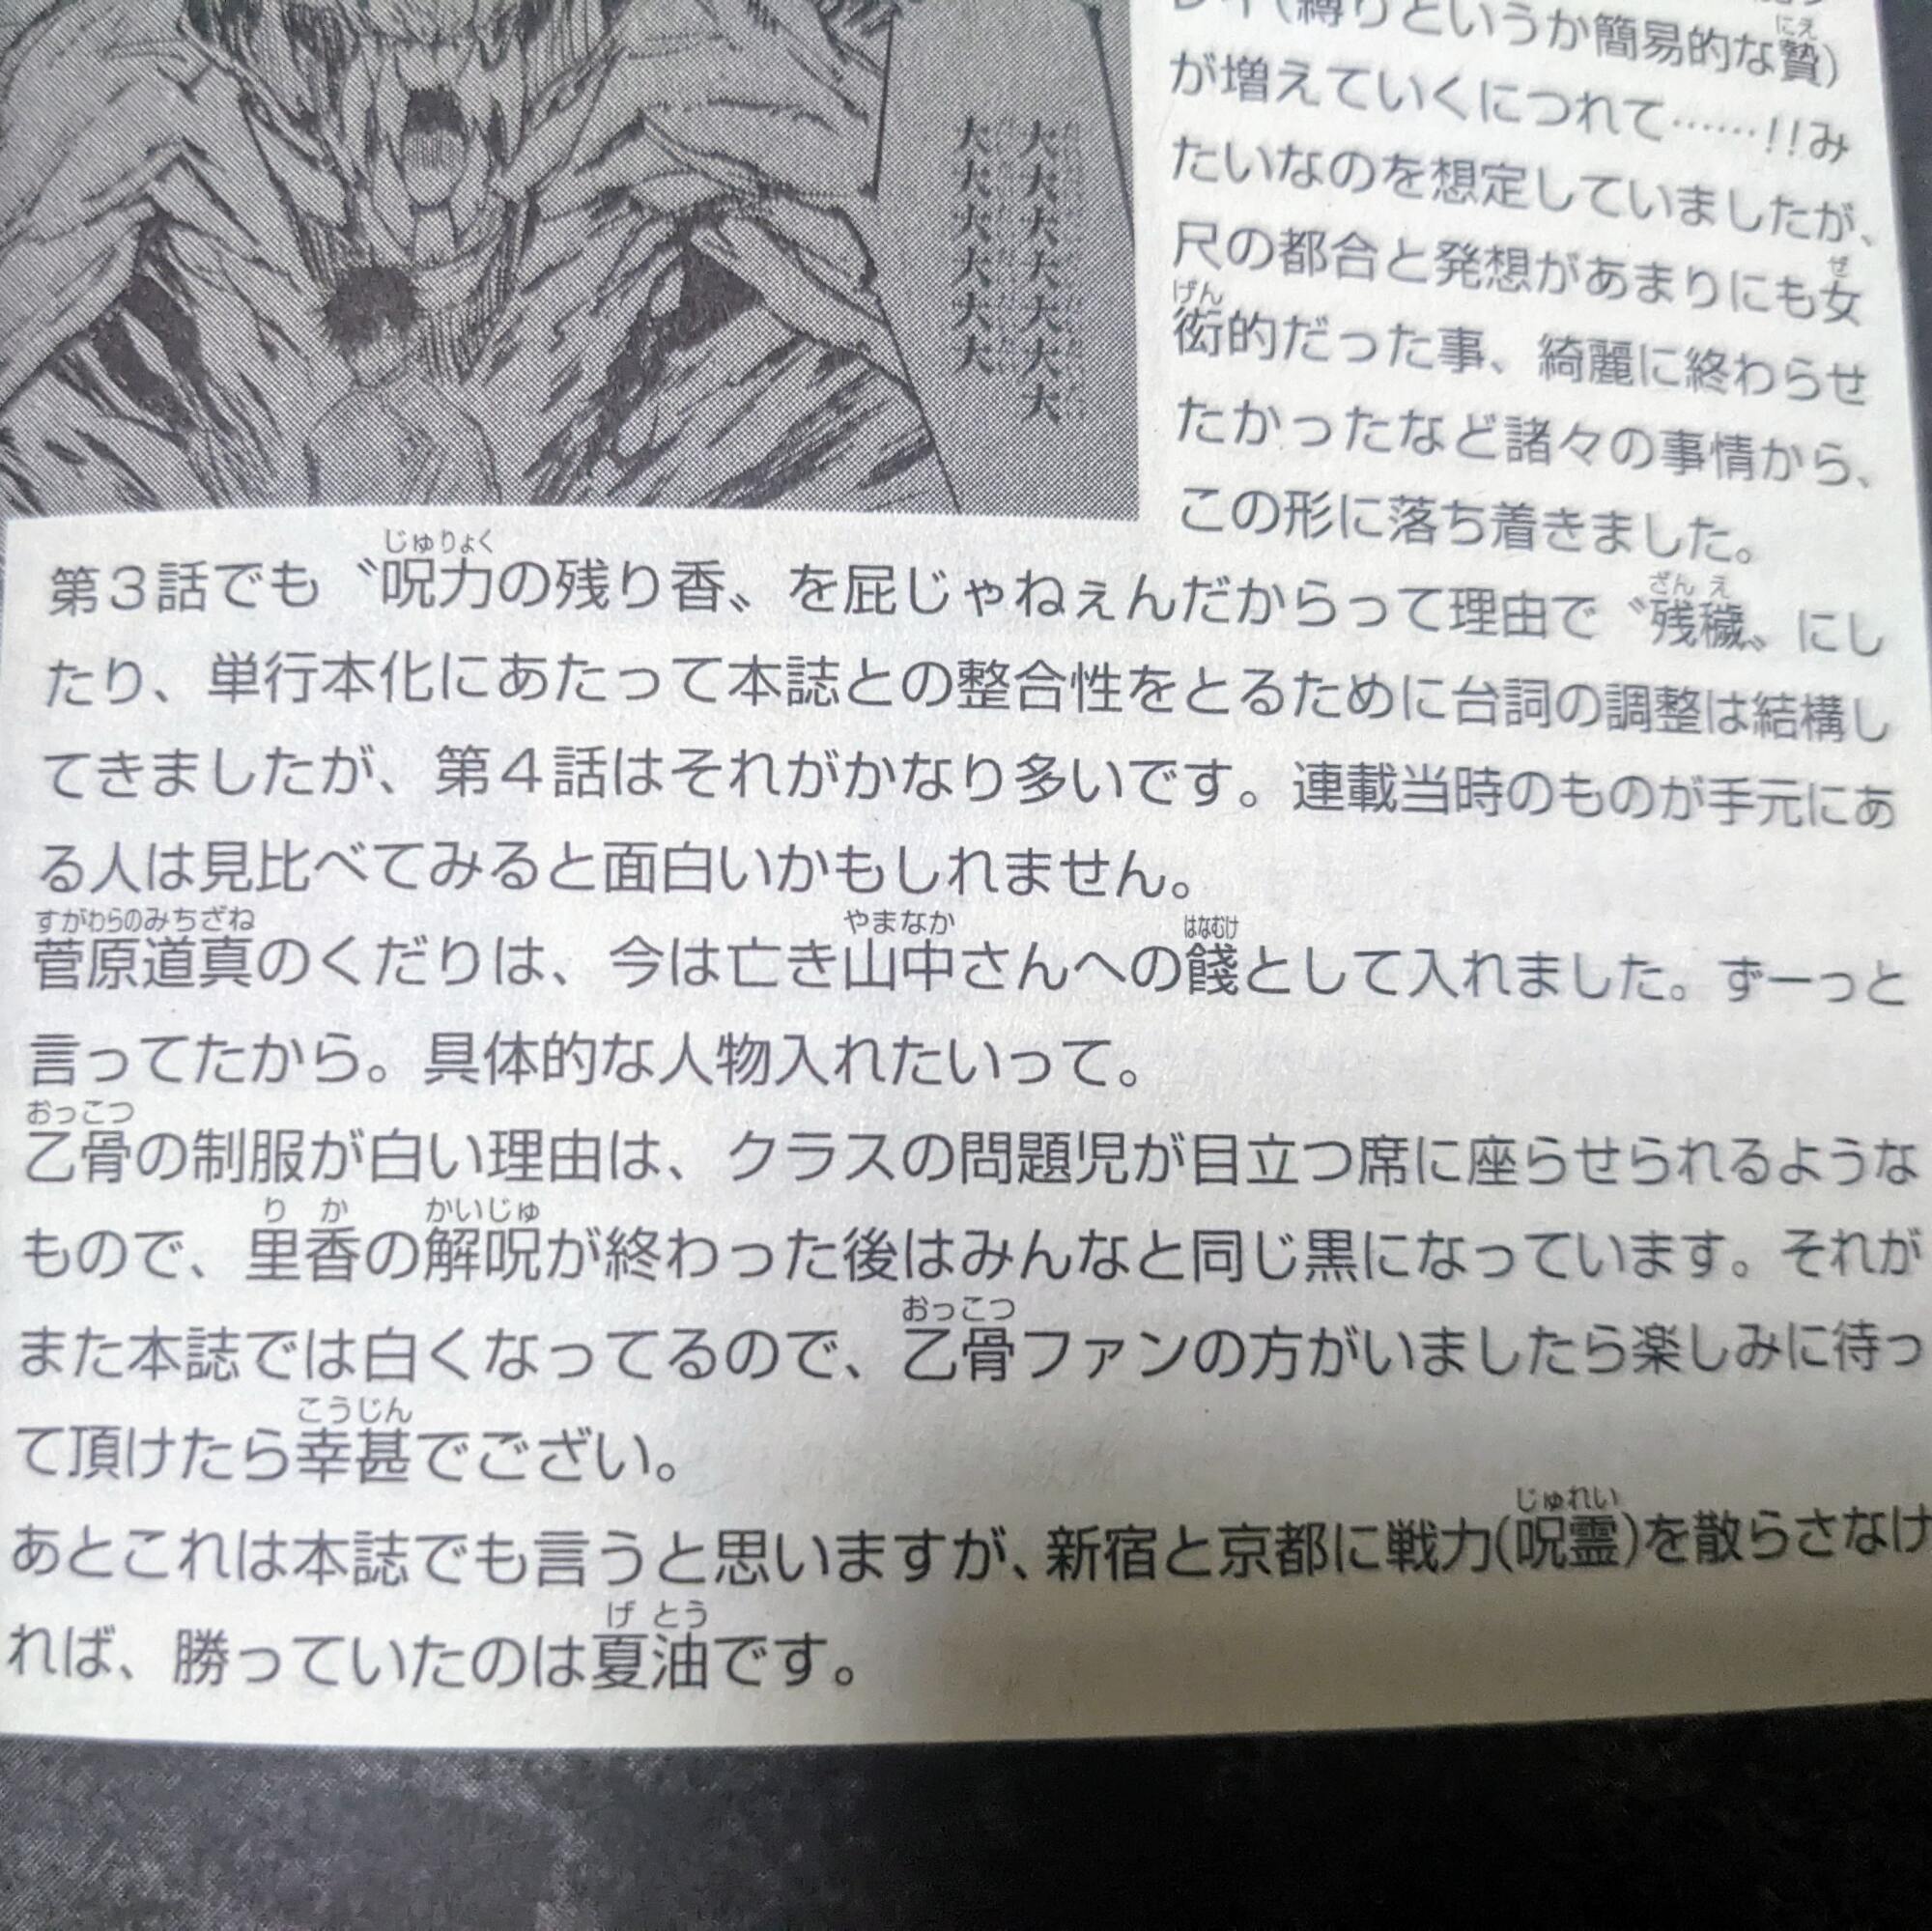 大大大大大大
大大大大大
(縛りというか簡易的な贄)
が増えていくにつれて……!!み
たいなのを想定していましたが、
尺の都合と発想があまりにも女
衒的だった事、綺麗に終わらせ
たかったなど諸々の事情から、
この形に落ち着きました。
第3話でも〝呪力の残り香〟を屁じゃねぇんだからって理由で〝残穢〟にし
たり、単行本化にあたって本誌との整合性をとるために台詞の調整は結構し
てきましたが、第4話はそれがかなり多いです。連載当時のものが手元にあ
る人は見比べてみると面白いかもしれません。
菅原道真のくだりは、今は亡き山中さんへの餞として入れました。ずーっと
言ってたから。具体的な人物入れたいって。
乙骨の制服が白い理由は、クラスの問題児が目立つ席に座らせられるような
もので、里香の解呪が終わった後はみんなと同じ黒になっています。それが
また本誌では白くなってるので、乙骨ファンの方がいましたら楽しみに待っ
て頂けたら幸甚でござい。
あとこれは本誌でも言うと思いますが、新宿と京都に戦力(呪霊)を散らさなけ
れば、勝っていたのは夏油です。